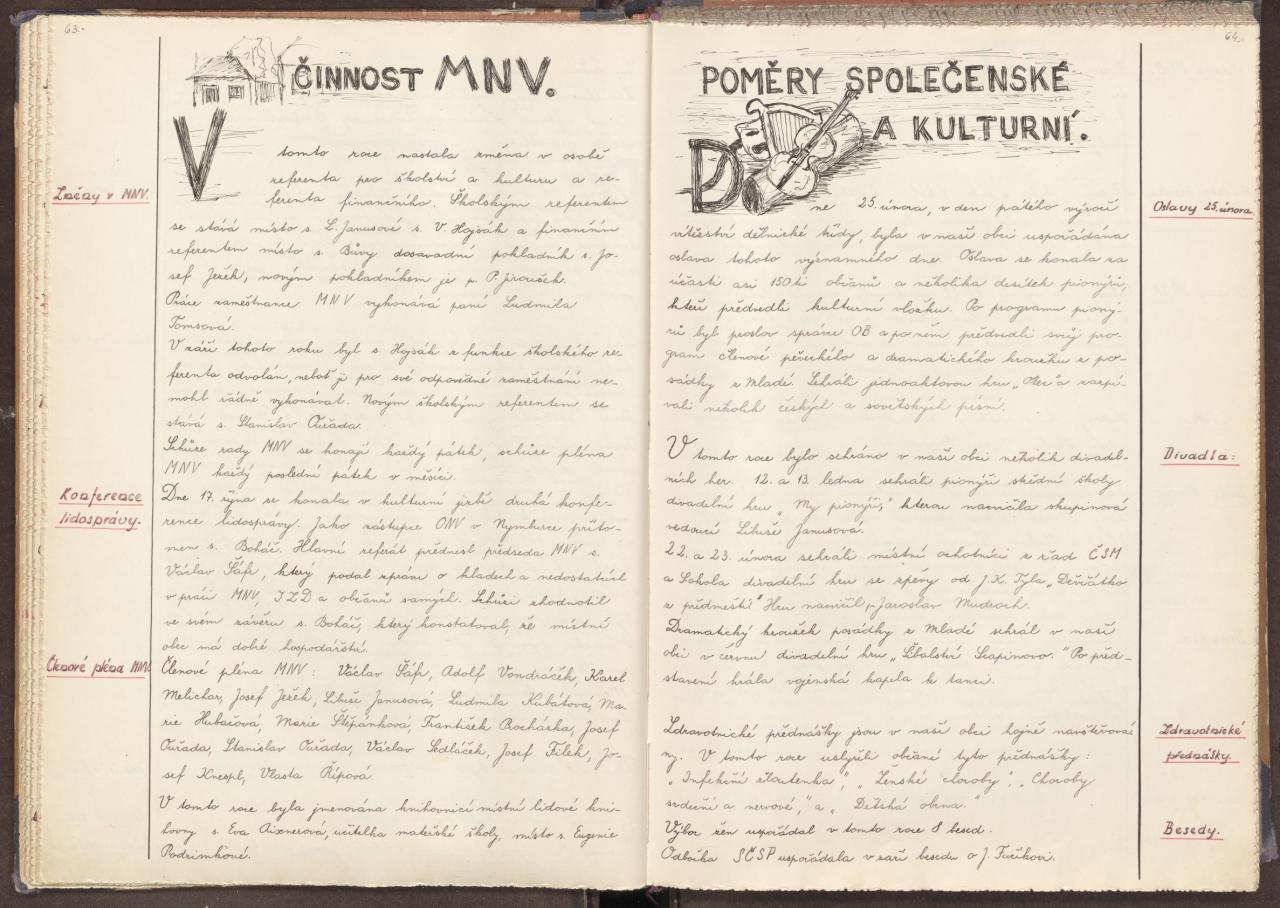 63.
ČINNOST MNV.
V tomto roce nastala změna v osobě
referenta pro školství a kulturu a re-
ferenta finančního. Školským referentem
Změny v MNV.
se stává místo s. L. Janusové s. V. Hojsák a finančním
referentem místo s. Bůvy dosavadní pokladník s. Jo-
sef Ježek, novým pokladníkem je p. P. Jiroušek.
Práce zaměstnance MNV vykonává paní Ludmila
Tomsová.
V září tohoto roku byl s. Hojsák z funkce školského re-
ferenta odvolán, neboť ji pro své odpovědné zaměstnání ne-
mohl řádně vykonávat. Novým školským referentem se
stává s. Stanislav Ouřada.
Schůze rady MNV se konají každý pátek, schůze pléna
MNV každý poslední pátek v měsíci.
Konference
lidosprávy.
Dne 17. října se konala v kulturní jizbě druhá konfe-
rence lidosprávy. Jako zástupce ONV v Nymburce příto-
men s. Boháč. Hlavní referát přednesl předseda MNV s.
Václav Šáfr, který podal zprávu o kladech a nedostatcích
v práci MNV, JZD a občanů samých. Schůzi zhodnotil
ve svém závěru s. Boháč, který konstatoval, že místní
obec má dobré hospodářství.
Členové pléna MNV.
Členové pléna MNV: Václav Šáfr, Adolf Vondráček, Karel
Melichar, Josef Ježek, Libuše Janusová, Ludmila Kubátová, Ma-
rie Hubačová, Marie Štěpánková, František Procházka, Josef
Ouřada, Stanislav Ouřada, Václav Sedláček, Josef Filek, Jo-
sef Knespl, Vlasta Řípová.
V tomto roce byla jmenována knihovnicí místní lidové kni-
hovny s. Eva Aixnerová, učitelka mateřské školy, místo s. Eugenie
Podzimkové.
64.
POMĚRY SPOLEČENSKÉ
A KULTURNÍ.
Dne 25. února, v den pátého výročí
Oslavy 25. února
vítězství dělnické třídy, byla v naší obci uspořádána
oslava tohoto významného dne. Oslava se konala za
účasti asi 150ti občanů a několika desítek pionýrů,
kteří předvedli kulturní vložku. Po programu pioný-
rů byl proslov správce OB a po něm předvedli svůj pro-
gram členové pěveckého a dramatického kroužku z po-
sádky z Mladé. Sehráli jednoaktovou hru „Otec“ a zazpí-
vali několik českých a sovětských písní.
Divadla:
V tomto roce bylo sehráno v naší obci několik divadel-
ních her. 12. a 13. ledna sehráli pionýři střední školy
divadelní hru „My pionýři“, kterou nacvičila skupinová
vedoucí Libuše Janusová.
22. a 23. února sehráli místní ochotníci z řad ČSM
a Sokola divadelní hru se zpěvy od J. K. Tyla „Děvčátko
z předměstí“. Hru nacvičil p. Jaroslav Mudroch.
Dramatický kroužek posádky z Mladé sehrál v naší
obci v červnu divadelní hru „Šibalství Scapinovo.“ Po před-
stavení hrála vojenská kapela k tanci.
Zdravotnické
přednášky.
Zdravotnické přednášky jsou v naší obci hojně navštěvová
ny. V tomto roce uslyšeli občané tyto přednášky:
„Infekční žloutenka“, „Ženské choroby“, „Choroby
srdeční a nervové,“ a „Dětská obrna.“
Besedy.
Výbor žen uspořádal v tomto roce 8 besed.
Odbočka SČSP uspořádala v září besedu o J. Fučíkovi.